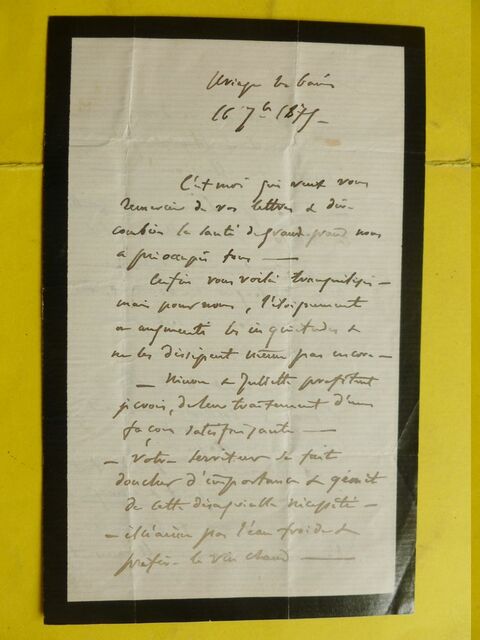 Uriage les bains
16 7bre 1875 –
C'est moi qui veux vous
remercier de vos lettres & dire
combien la santé de grand-père nous
a préoccupés tous —
Enfin vous voilà tranquilisés –
mais pour nous, l'éloignement
a augmenté les inquiétudes &
ne les dissipent même pas encore –
– Ninon & Juliette profitent
je crois, de leur traitement d'une
façon satisfaisante —
– Votre serviteur se fait
doucher d'importance & gémit
de cette désagréable nécessité –
– il n'aime pas l'eau froide &
préfère le vin chaud —